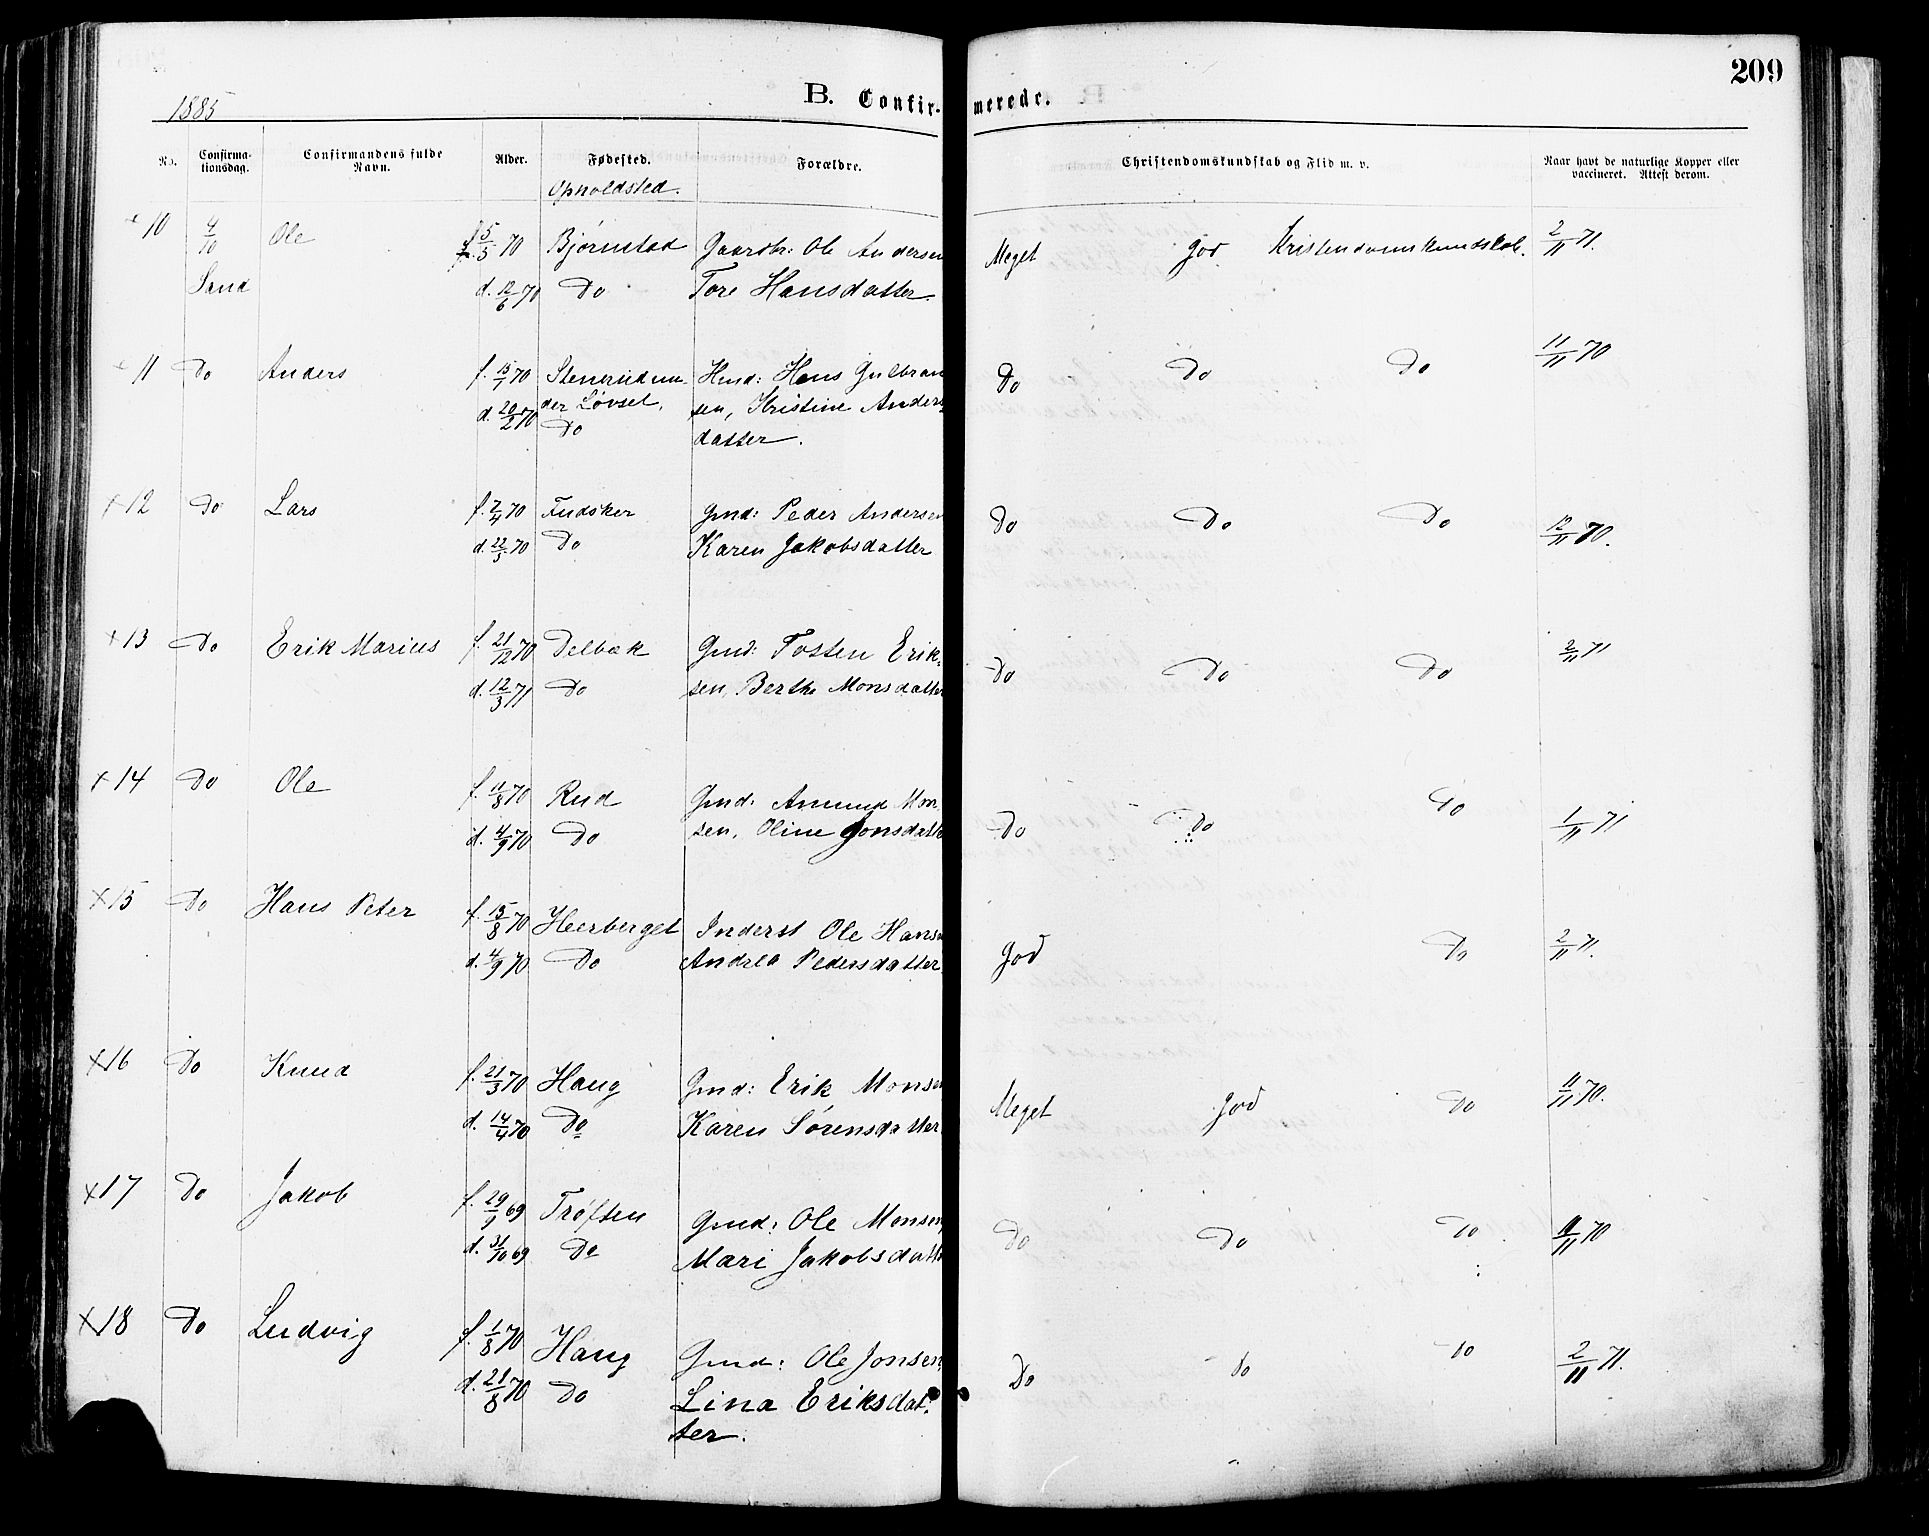 209
1885
B. Confir-merede.
No. Confirma-tionsdag. Confirmandens fulde Navn. Alder. Fødested. Forældre. Christendomskundskab og Flid m. v. Naar havt de naturlige Kopper eller vaccineret. Attest derom.
Opholdsted.
10 4/10 Ole 5/5 70 Bjørnstad Gaardbr: Ole Andersen Meget god Kristendomskundskab. 2/11 71.
Sand d. 12/6 70 Do Tore Hansdatter.
11 Do Anders f. 15/1 70 Stenerud un- Hmd: Hans Gulbran Do Do Do 11/11 70
d. 20/2 70 der Løvset, sen, Kristine Anders
Do datter.
+12 Do Lars f. 7/4 70 Fudsker Gmd: Peder Andersen Do Do Do 12/11 70.
d. 22/5 70 Do Karen Jakobsdatter
+13 Do Erik Marius f. 21/12 70 Delbæk Gmd: Tosten Erik- Do Do Do 2/11 71
d. 12/3 71 Do sen, Berthe Monsdatter
+14 Do Ole f. 11/8 70 Rud Gmd: Amund Mon Do Do Do 1/11 71
d. 4/9 70 Do sen, Oline Jonsdatte
+15 Do Hans Peter f. 15/8 70 Heerberget Inderst Ole Hans god Do 2/11 71.
d. 4/9 70 Do Andrea Pedersdatter.
+16 Do Knud f. 21/3 70 Haug Gmd: Erik Monsen Meget god Do 11/11 70.
d. 14/4 70 Do Karen Sørensdatter.
+17 Do Jakob f. 29/9 69 Trøften Gmd: Ole Monsen, Do Do Do 11/11 70
d. 31/10 69 Do Mari Jakobsdatte
+18 Do Ludvig f. 1/8 70 Haug Gmd: Ole Jonsen, Do do do 2/11 71.
d. 21/8 70 Do Lina Eriksdat-
ter.